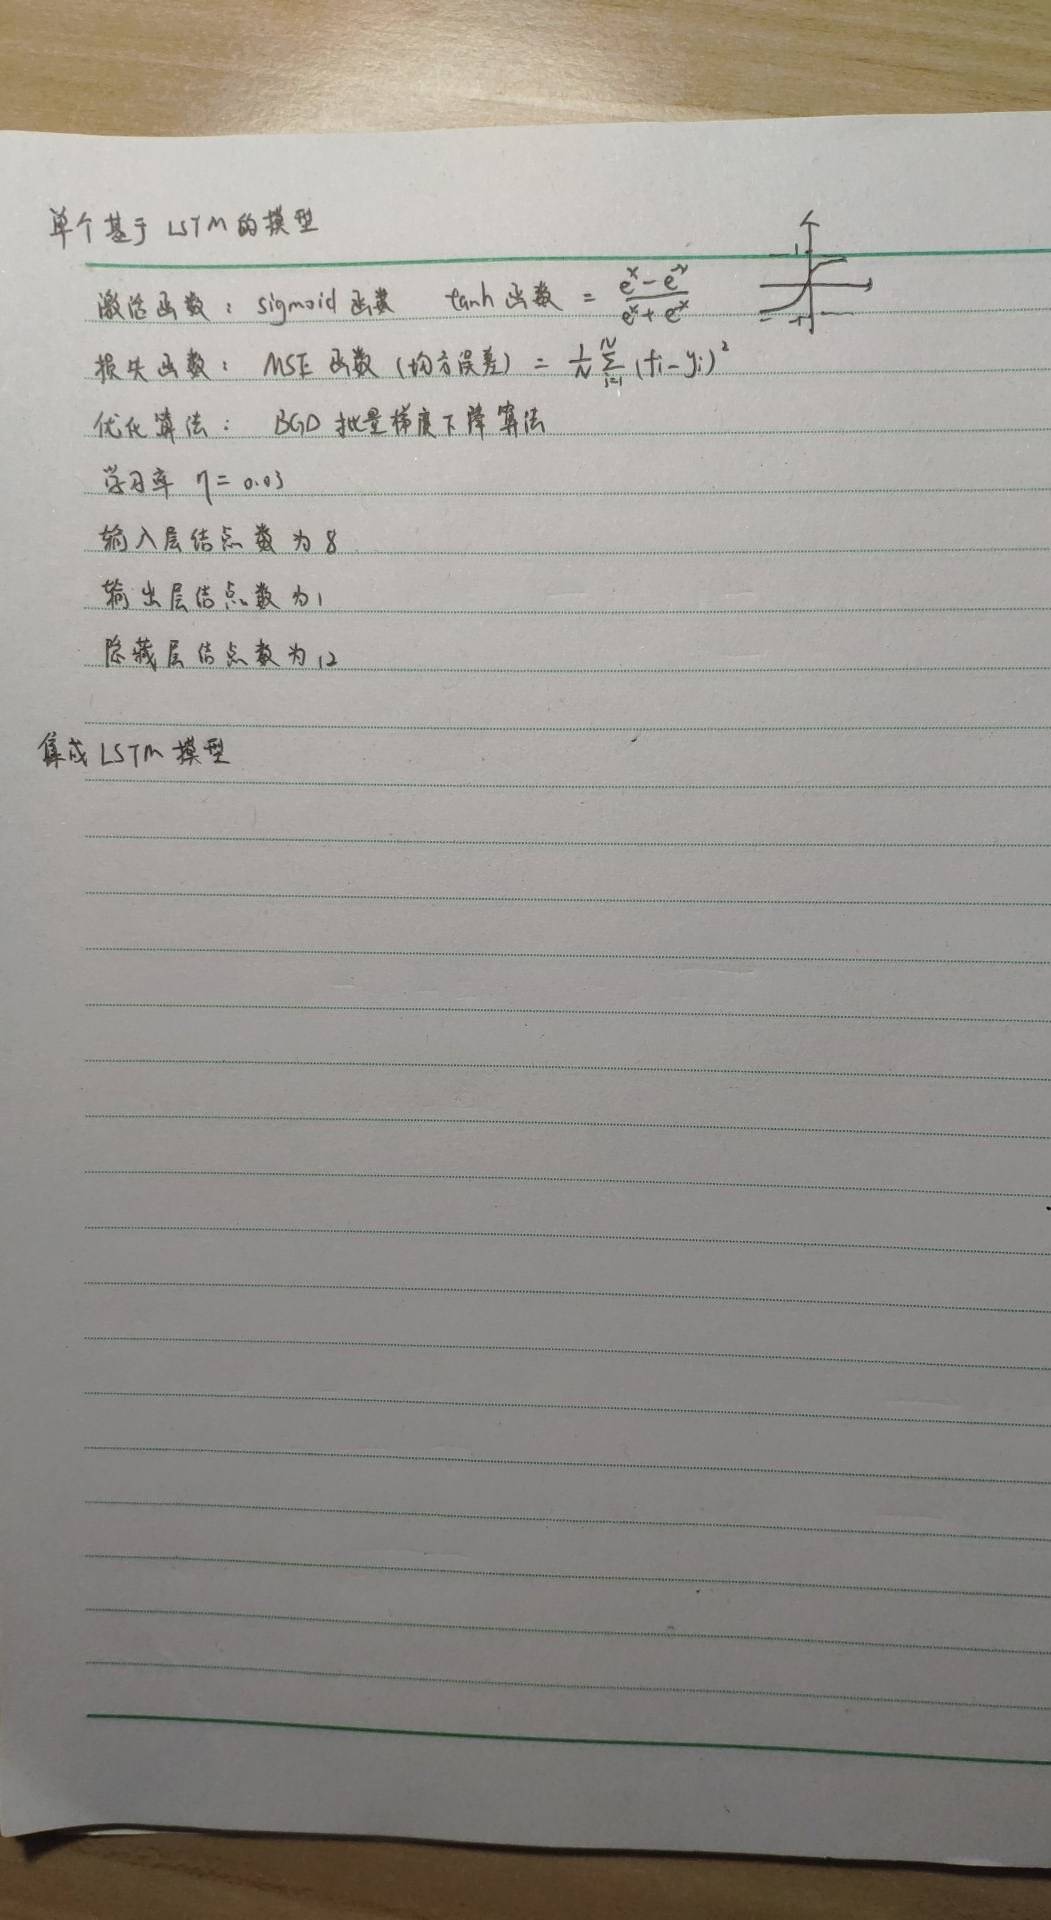 单个基于 LSTM 的模型
激活函数: sigmoid 函数 tanh 函数 = \frac{e^x - e^{-x}}{e^x + e^{-x}} 1 -1
损失函数: MSE 函数 (均方误差) = \frac{1}{N} \sum_{i=1}^{N} (f_i - y_i)^2
优化算法: BGD 批量梯度下降算法
学习率 η = 0.03
输入层结点数为 8
输出层结点数为 1
隐藏层结点数为 12
集成 LSTM 模型